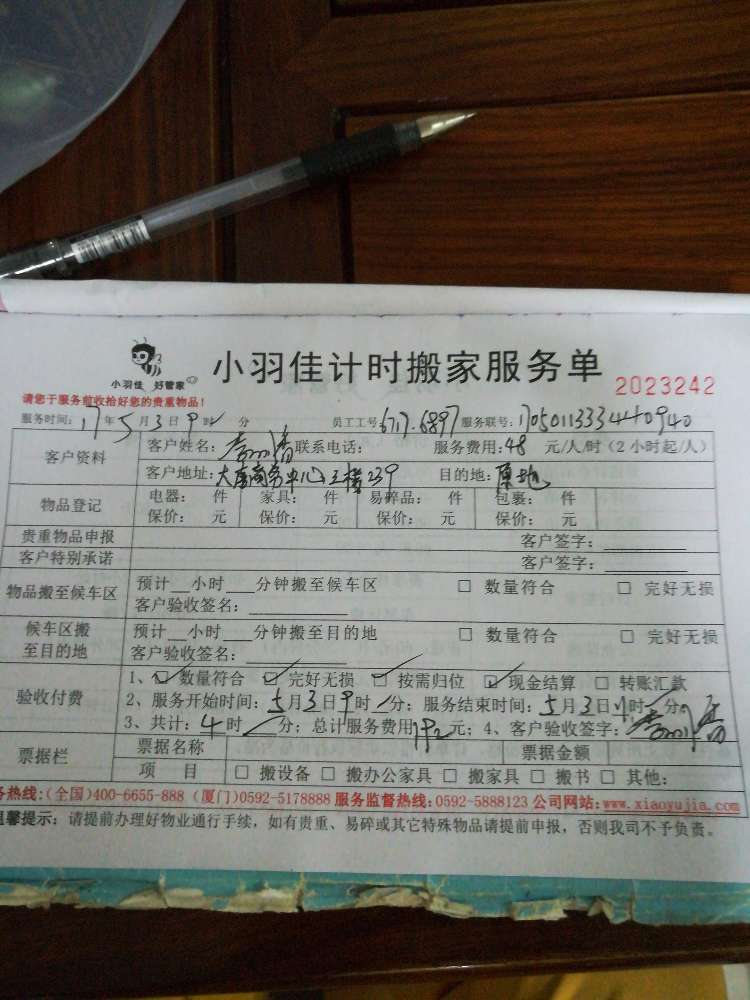 小羽佳 好管家
小羽佳计时搬家服务单 2023242
请您于服务前收拾好您的贵重物品！
服务时间：17年5月3日9时 分 员工工号 617.6897 服务联号：
客户资料 客户姓名： 联系电话： 服务费用：48 元/人/时（2小时起/人）
客户地址： 商务中心 楼239 目的地：原地
物品登记 电器： 件 家具： 件 易碎品： 件 包裹： 件
保价： 元 保价： 元 保价： 元 保价： 元
贵重物品申报 客户签字：
客户特别承诺 客户签字：
物品搬至候车区 预计__小时___分钟搬至候车区 □ 数量符合 □ 完好无损
客户验收签名：
候车区搬至目的地 预计__小时___分钟搬至目的地 □ 数量符合 □ 完好无损
客户验收签名：
验收付费 1、☑数量符合 ☑ 完好无损 ☑ 按需归位 ☑ 现金结算 □ 转账汇款
2、服务开始时间：5月3日9时/分；服务结束时间：5月3日 时/分
3、共计：4时/分；总计服务费用192元；4、客户验收签字：
票据栏 票据名称 票据金额
项 目 □ 搬设备 □ 搬办公家具 □ 搬家具 □ 搬书 □ 其他：
务热线：(全国)400-6655-888 (厦门)0592-5178888 服务监督热线：0592-5888123 公司网站：www.xiaoyujia.com
温馨提示：请提前办理好物业通行手续，如有贵重、易碎或其它特殊物品请提前申报，否则我司不予负责。